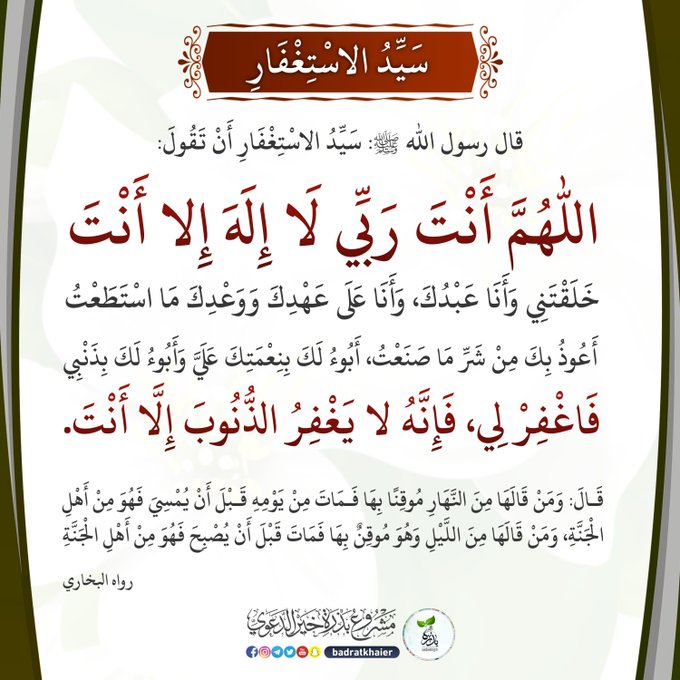 سَيِّدُ الاسْتِغْفَارِ
قال رسول الله ﷺ: سَيِّدُ الاسْتِغْفَارِ أَنْ تَقُولَ:
اللَّهُمَّ أَنْتَ رَبِّي لَا إِلَهَ إِلا أَنْتَ
خَلَقْتَنِي وَأَنَا عَبْدُكَ، وَأَنَا عَلَى عَهْدِكَ وَوَعْدِكَ مَا اسْتَطَعْتُ
أَعُوذُ بِكَ مِنْ شَرِّ مَا صَنَعْتُ، أَبُوءُ لَكَ بِنِعْمَتِكَ عَلَيَّ وَأَبُوءُ لَكَ بِذَنْبِي
فَاغْفِرْ لِي، فَإِنَّهُ لا يَغْفِرُ الذُّنُوبَ إِلَّا أَنْتَ.
قَالَ: وَمَنْ قَالَهَا مِنَ النَّهَارِ مُوقِنًا بِهَا فَمَاتَ مِنْ يَوْمِهِ قَبْلَ أَنْ يُمْسِيَ فَهُوَ مِنْ أَهْلِ
الْجَنَّةِ، وَمَنْ قَالَهَا مِنَ اللَّيْلِ وَهُوَ مُوقِنٌ بِهَا فَمَاتَ قَبْلَ أَنْ يُصْبِحَ فَهُوَ مِنْ أَهْلِ الْجَنَّةِ
رواه البخاري
مشروع بذرة خير الدعوي
badratkhaier